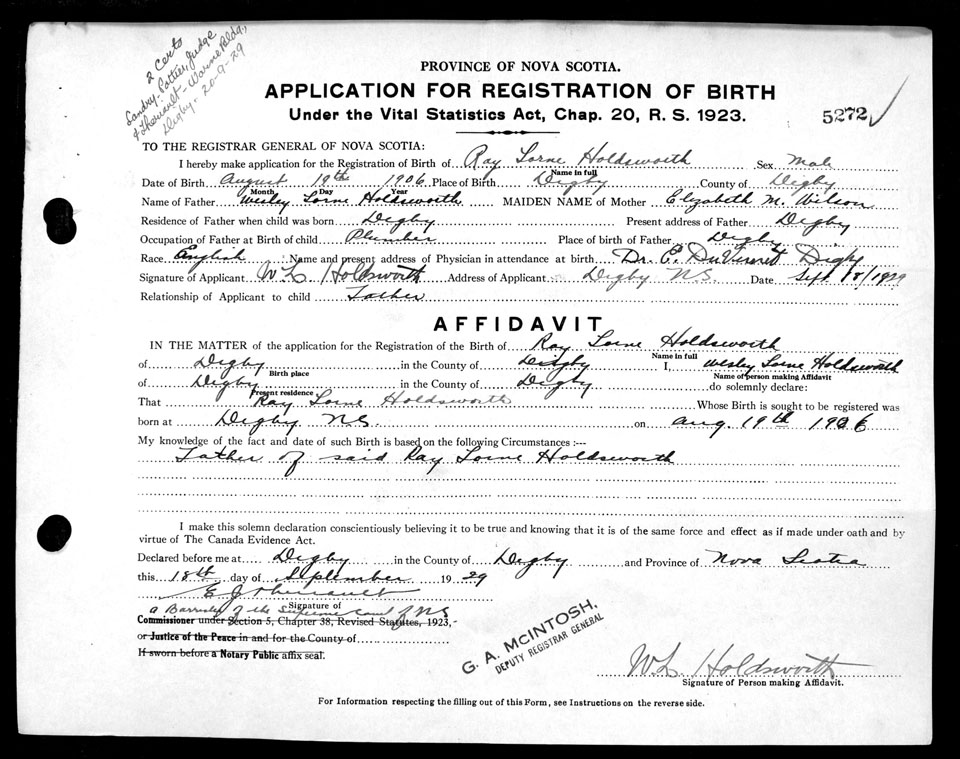 2 Certs
Landry, Pottier, Judge
& Theriault - Warne Bldg,
Digby - 20-9-29
PROVINCE OF NOVA SCOTIA.
APPLICATION FOR REGISTRATION OF BIRTH
Under the Vital Statistics Act, Chap. 20, R. S. 1923.
5272
TO THE REGISTRAR GENERAL OF NOVA SCOTIA:
I hereby make application for the Registration of Birth of Ray Lorne Holdsworth Sex Male
Name in full
Date of Birth August 19th 1906 Place of Birth Digby County of Digby
Month Day Year
Name of Father Wesley Lorne Holdsworth MAIDEN NAME of Mother Elizabeth M. Wilson
Residence of Father when child was born Digby Present address of Father Digby
Occupation of Father at Birth of child Plumber Place of birth of Father Digby
Race English Name and present address of Physician in attendance at birth Dr. E. DuVernet Digby
Signature of Applicant W L Holdsworth Address of Applicant Digby NS Date Sept 18/1929
Relationship of Applicant to child Father
AFFIDAVIT
IN THE MATTER of the application for the Registration of the Birth of Ray Lorne Holdsworth
Name in full
of Digby in the County of Digby I, Wesley Lorne Holdsworth
Birth place Name of person making Affidavit
of Digby in the County of Digby do solemnly declare:
Present residence
That Ray Lorne Holdsworth Whose Birth is sought to be registered was
born at Digby NS on Aug. 19th 1906
My knowledge of the fact and date of such Birth is based on the following Circumstances :---
Father of said Ray Lorne Holdsworth
I make this solemn declaration conscientiously believing it to be true and knowing that it is of the same force and effect as if made under oath and by
virtue of The Canada Evidence Act.
Declared before me at Digby in the County of Digby and Province of Nova Scotia
this 18th day of September 1929
E J Theriault
Signature of
a Barrister of the Supreme Court of NS
Commissioner under Section 5, Chapter 38, Revised Statutes, 1923,
or Justice of the Peace in and for the County of
If sworn before a Notary Public affix seal.
G. A. McINTOSH,
DEPUTY REGISTRAR GENERAL
W L Holdsworth
Signature of Person making Affidavit.
For Information respecting the filling out of this Form, see Instructions on the reverse side.